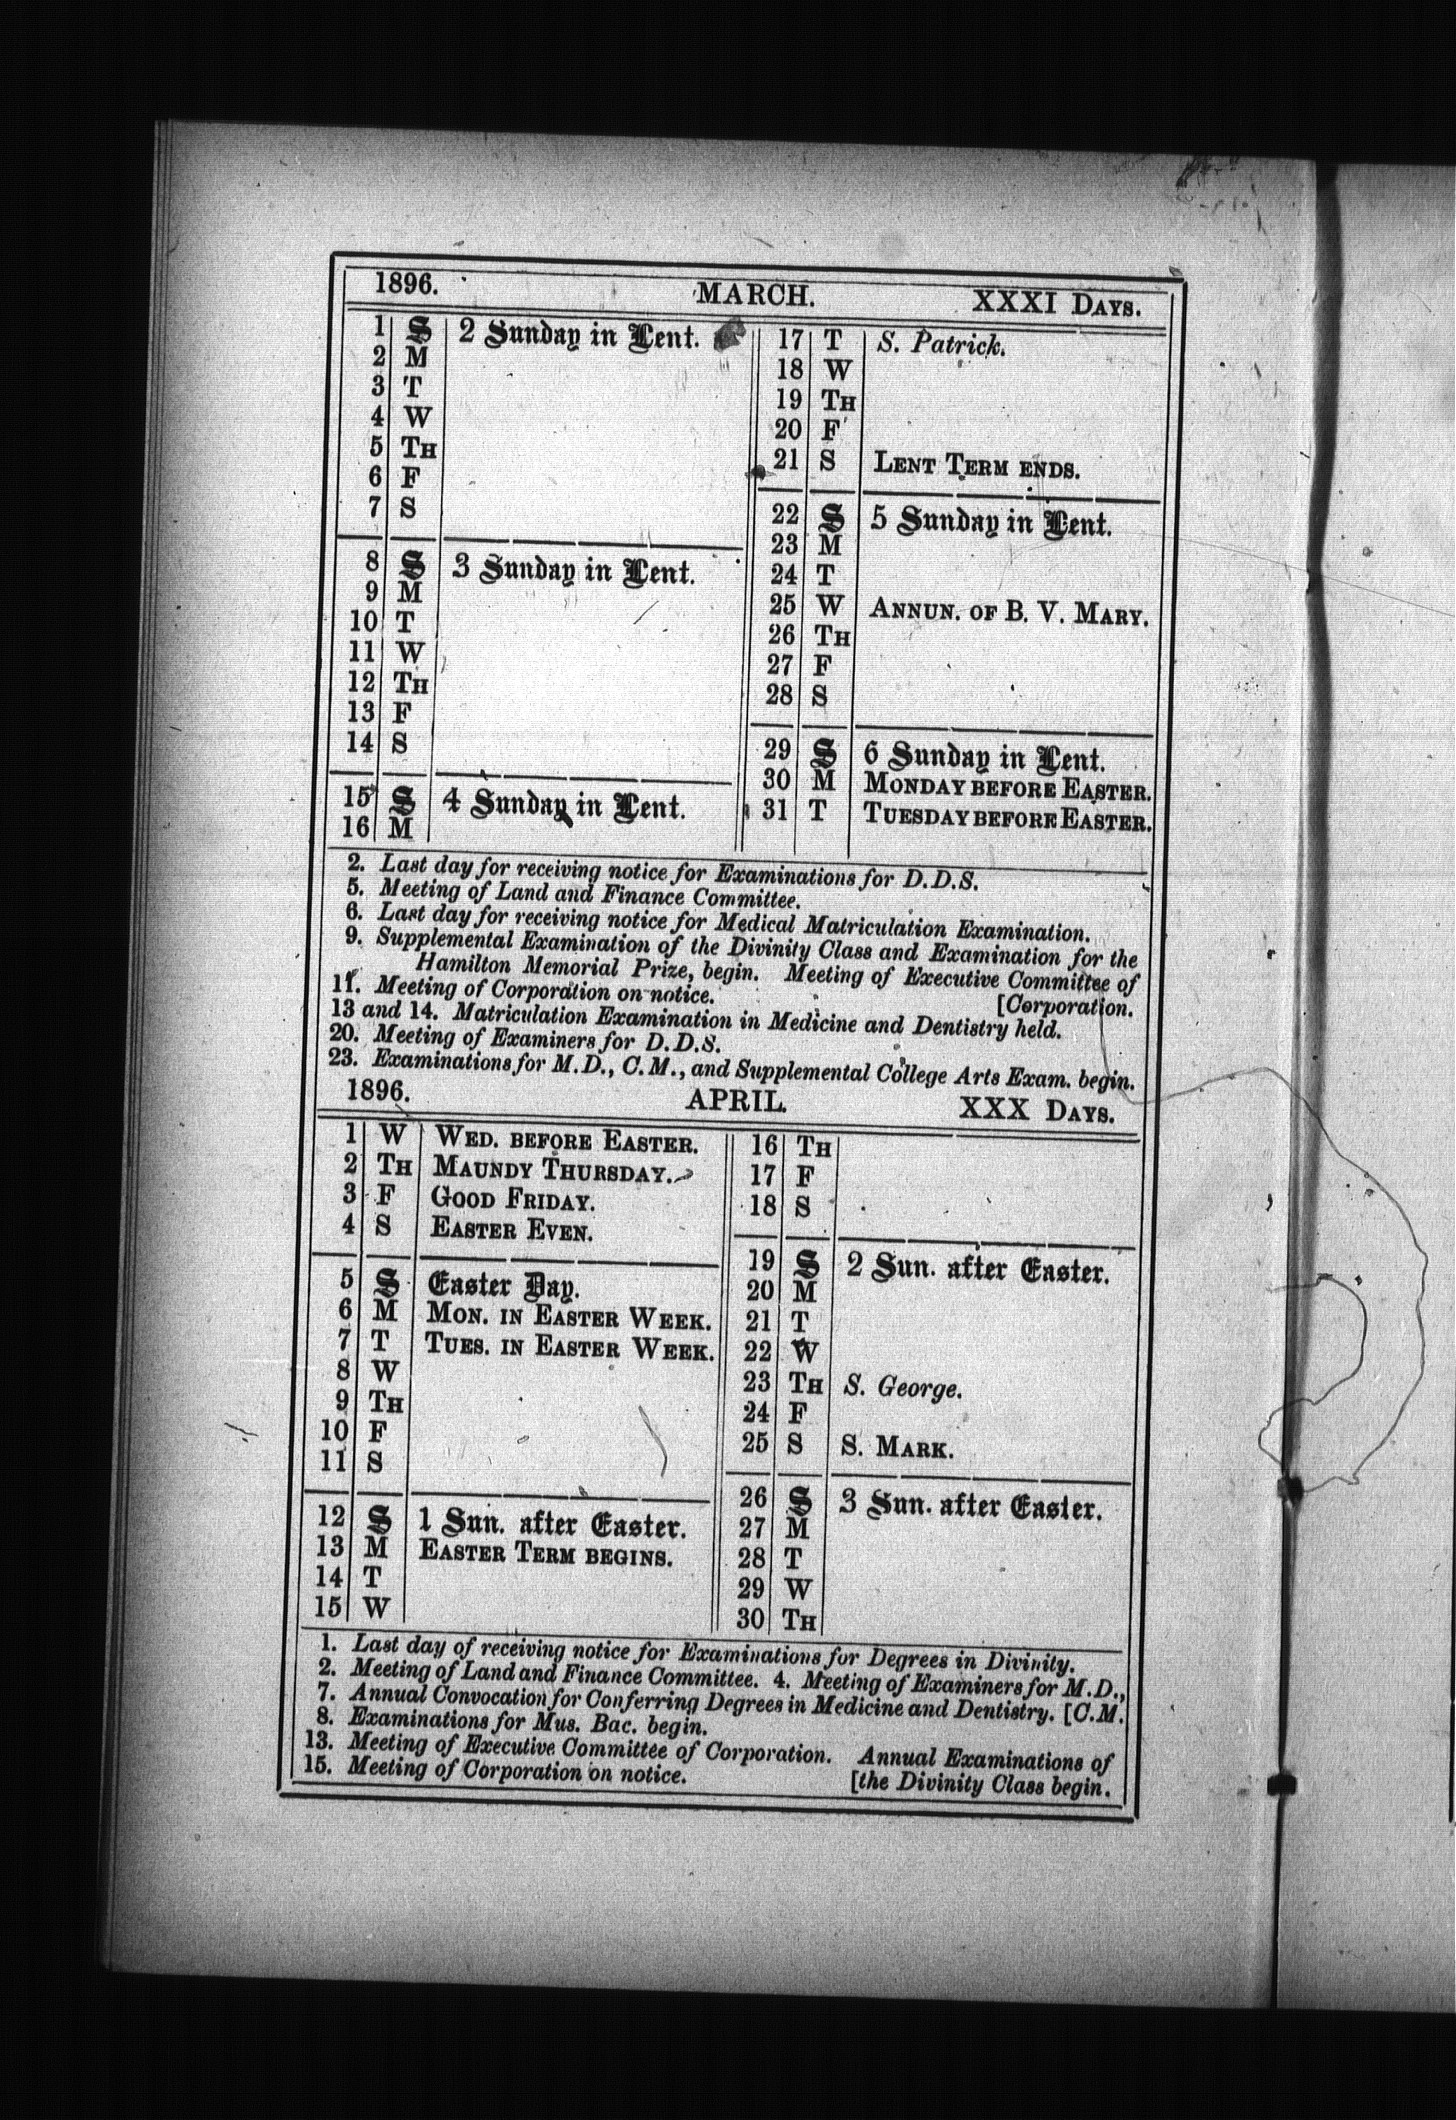 1896. MARCH. XXXI DAYS.
1 S 2 Sunday in Lent.
2 M
3 T
4 W
5 TH
6 F
7 S
8 S 3 Sunday in Lent.
9 M
10 T
11 W
12 TH
13 F
14 S
15 S 4 Sunday in Lent.
16 M
17 T S. Patrick.
18 W
19 TH
20 F
21 S LENT TERM ENDS.
22 S 5 Sunday in Lent.
23 M
24 T
25 W ANNUN. OF B. V. MARY.
26 TH
27 F
28 S
29 S 6 Sunday in Lent.
30 M MONDAY BEFORE EASTER.
31 T TUESDAY BEFORE EASTER.
2. Last day for receiving notice for Examinations for D.D.S.
5. Meeting of Land and Finance Committee.
6. Last day for receiving notice for Medical Matriculation Examination.
9. Supplemental Examination of the Divinity Class and Examination for the
Hamilton Memorial Prize, begin. Meeting of Executive Committee of
11. Meeting of Corporation on notice. [Corporation.
13 and 14. Matriculation Examination in Medicine and Dentistry held.
20. Meeting of Examiners for D.D.S.
23. Examinations for M.D., C.M., and Supplemental College Arts Exam. begin.
1896. APRIL. XXX DAYS.
1 W WED. BEFORE EASTER.
2 TH MAUNDY THURSDAY.
3 F GOOD FRIDAY.
4 S EASTER EVEN.
5 S Easter Day.
6 M MON. IN EASTER WEEK.
7 T TUES. IN EASTER WEEK.
8 W
9 TH
10 F
11 S
12 S 1 Sun. after Easter.
13 M EASTER TERM BEGINS.
14 T
15 W
16 TH
17 F
18 S
19 S 2 Sun. after Easter.
20 M
21 T
22 W
23 TH S. George.
24 F
25 S S. MARK.
26 S 3 Sun. after Easter.
27 M
28 T
29 W
30 TH
1. Last day of receiving notice for Examinations for Degrees in Divinity.
2. Meeting of Land and Finance Committee. 4. Meeting of Examiners for M.D.,
7. Annual Convocation for Conferring Degrees in Medicine and Dentistry. [C.M.
8. Examinations for Mus. Bac. begin.
13. Meeting of Executive Committee of Corporation. Annual Examinations of
15. Meeting of Corporation on notice. [the Divinity Class begin.